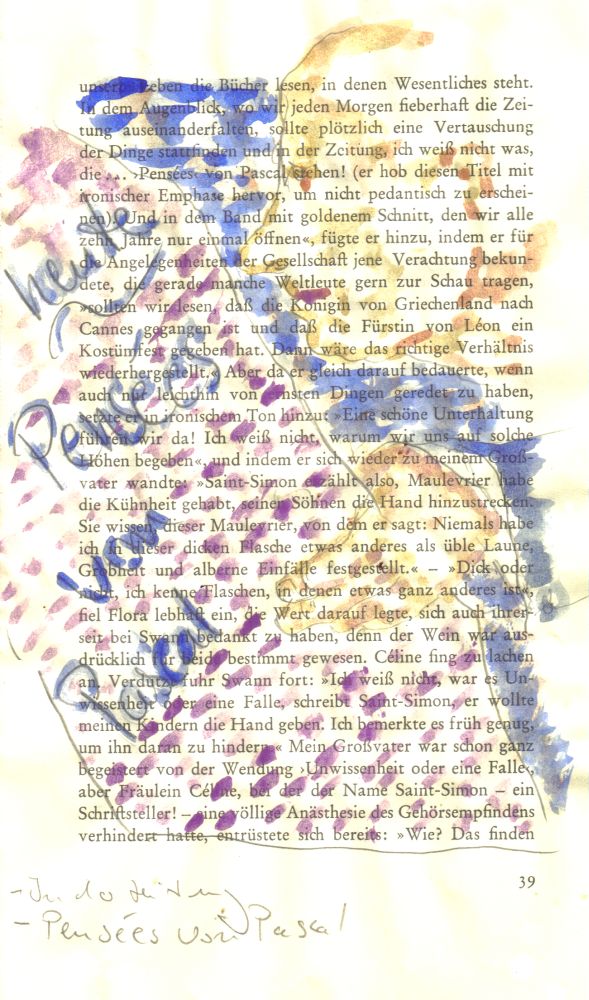 unseres Leben die Bücher lesen, in denen Wesentliches steht.
In dem Augenblick, wo wir jeden Morgen fieberhaft die Zei-
tung auseinanderfalten, sollte plötzlich eine Vertauschung
der Dinge stattfinden und in der Zeitung, ich weiß nicht was,
die … ›Pensées‹ von Pascal stehen! (er hob diesen Titel mit
ironischer Emphase hervor, um nicht pedantisch zu erschei-
nen). Und in dem Band mit goldenem Schnitt, den wir alle
zehn Jahre nur einmal öffnen«, fügte er hinzu, indem er für
die Angelegenheiten der Gesellschaft jene Verachtung bekun-
dete, die gerade manche Weltleute gern zur Schau tragen,
»sollten wir lesen, daß die Königin von Griechenland nach
Cannes gegangen ist und daß die Fürstin von Léon ein
Kostümfest gegeben hat. Dann wäre das richtige Verhältnis
wiederhergestellt.« Aber da er gleich darauf bedauerte, wenn
auch nur leichthin von ernsten Dingen geredet zu haben,
setzte er in ironischem Ton hinzu: »Eine schöne Unterhaltung
führen wir da! Ich weiß nicht, warum wir uns auf solche
Höhen begeben«, und indem er sich wieder zu meinem Groß-
vater wandte: »Saint-Simon erzählt also, Maulevrier habe
die Kühnheit gehabt, seinen Söhnen die Hand hinzustrecken.
Sie wissen, dieser Maulevrier, von dem er sagt: Niemals habe
ich in dieser dicken Flasche etwas anderes als üble Laune,
Grobheit und alberne Einfälle festgestellt.« – »Dick oder
nicht, ich kenne Flaschen, in denen etwas ganz anderes ist«,
fiel Flora lebhaft ein, die Wert darauf legte, sich auch ihrer-
seit bei Swann bedankt zu haben, denn der Wein war aus-
drücklich für beide bestimmt gewesen. Céline fing zu lachen
an. Verdutzt fuhr Swann fort: »Ich weiß nicht, war es Un-
wissenheit oder eine Falle, schreibt Saint-Simon, er wollte
meinen Kindern die Hand geben. Ich bemerkte es früh genug,
um ihn daran zu hindern.« Mein Großvater war schon ganz
begeistert von der Wendung ›Unwissenheit oder eine Falle‹,
aber Fräulein Céline, bei der der Name Saint-Simon – ein
Schriftsteller! – eine völlige Anästhesie des Gehörsempfindens
verhindert hatte, entrüstete sich bereits: »Wie? Das finden
39
heute
Pensées
von
Pascal
- In der Zeitung
- Pensées von Pascal